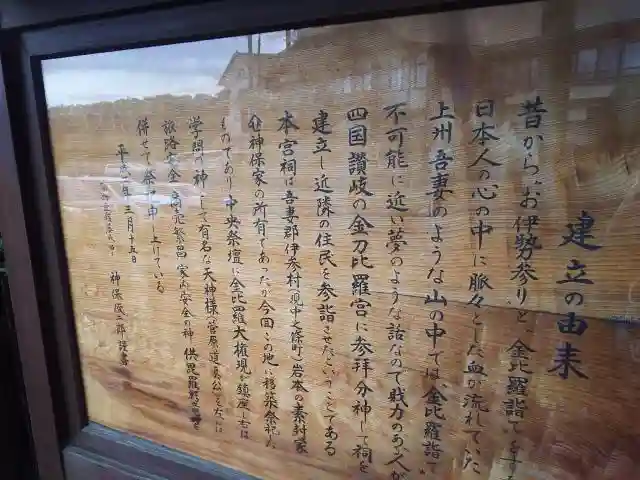 建立の由来
昔から"お伊勢参りと、金比羅詣で
日本人の心の中に脈々とした血が流れていた
上州吾妻のような山の中では、金比羅詣で
不可能に近い夢のような話なので財力のある人が
四国讃岐の金刀比羅宮に参拝分神して祠を
建立し近隣の住民を参詣させたということである
本宮祠は吾妻郡伊参村(現中之條町)岩本の素封家
神保家の所有であったが今回この地に移築祭祀した
ものであり中央祭壇に金比羅大権現を鎮座し右は
学問の神として有名な天神様(菅原道真公)を左には
旅路安全商売繁昌家内安全の神
併せて祭祀申し上げている
平成 年三月十五日
神保
謹書